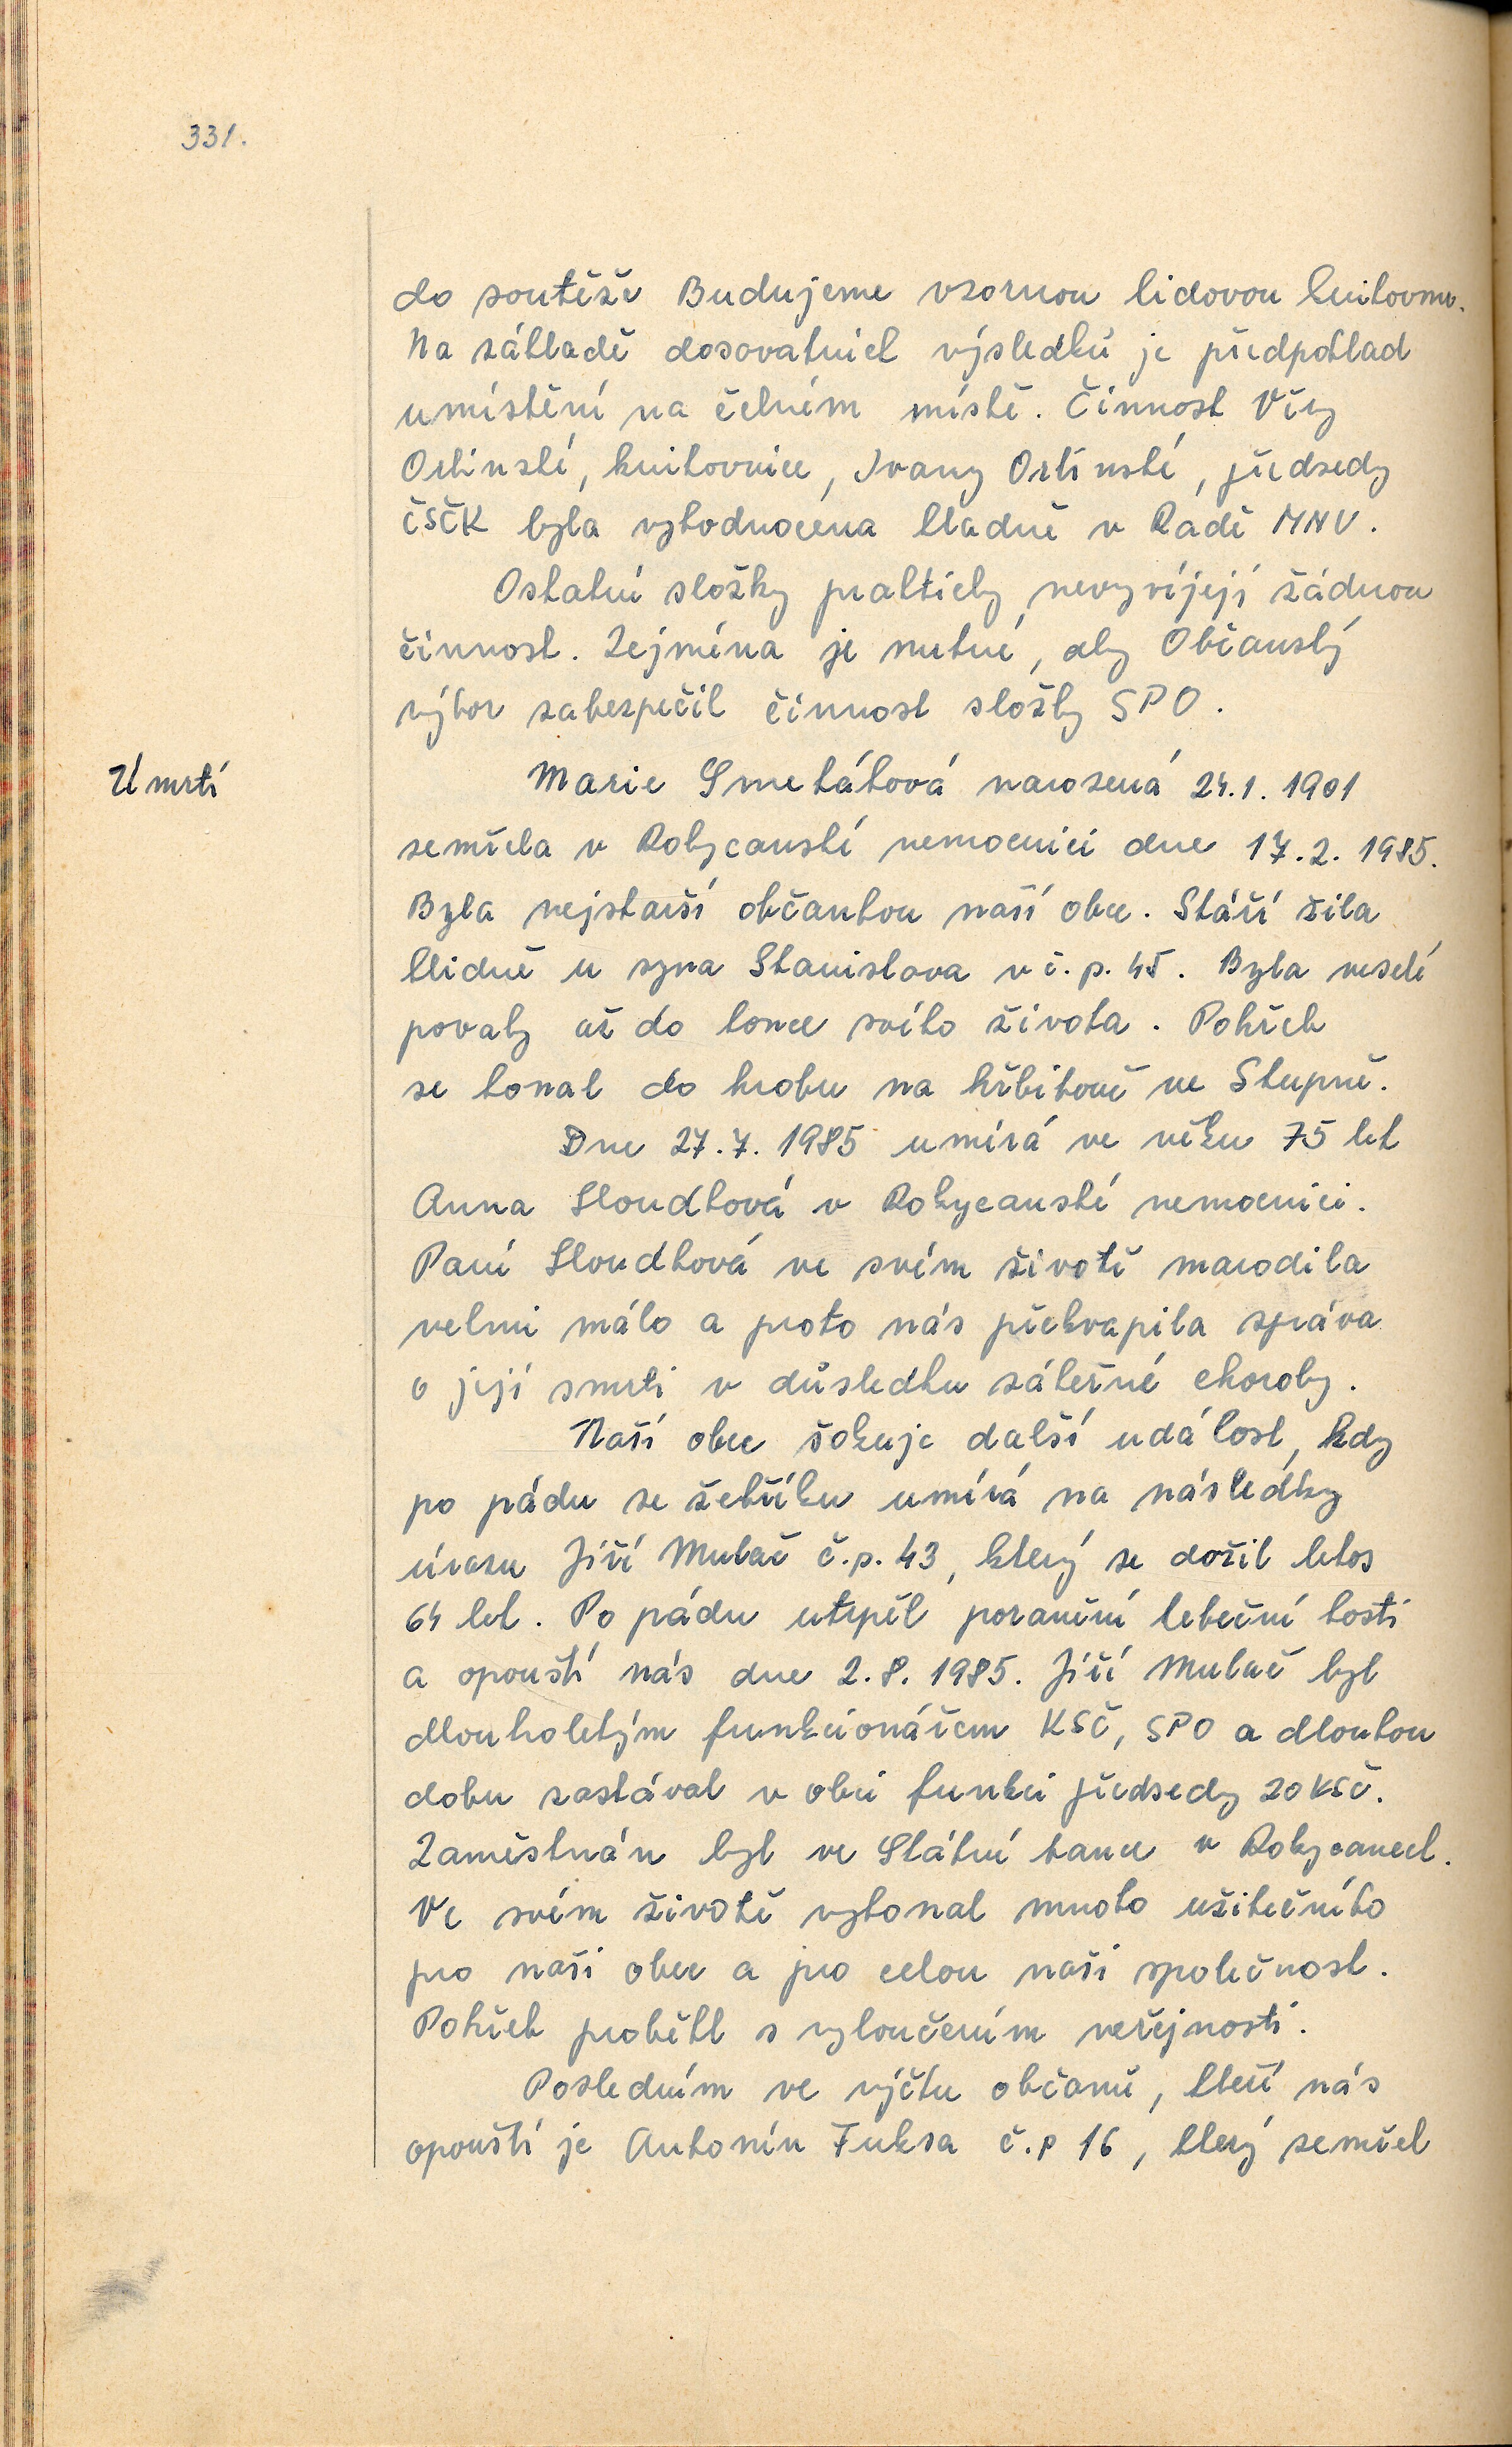 331.
do soutěže Budujeme vzornou lidovou knihovnu.
Na základě dosavatních výsledků je předpoklad
umístění na čelném místě. Činnost Věry
Orlinské, knihovnice, Ivany Orlinské, předsedy
ČSČK byla vyhodnocena kladně v Radě MNV.
Ostatní složky prakticky nevyvíjejí žádnou
činnost. Zejména je nutné, aby Občanský
výbor zabezpečil činnost složky SPO.
Úmrtí
Marie Smetáková narozená 24.1. 1901
zemřela v Rokycanské nemocnici dne 17.2. 1985.
Byla nejstarší občankou naší obce. Stáří žila
klidně u syna Stanislava v č.p. 45. Byla veselé
povahy až do konce svého života. Pohřeb
se konal do hrobu na hřbitově ve Stupně.
Dne 27.7. 1985 umírá ve věku 75 let
Anna Sloudková v Rokycanské nemocnici.
Paní Sloudková ve svém životě marodila
velmi málo a proto nás překvapila zpráva
o její smrti v důsledku zákeřné choroby.
Naší obec šokuje další událost, kdy
po pádu se žebříku umírá na následky
úrazu Jiří Mulač č.p. 43, který se dožil letos
64 let. Po pádu utrpěl poranění lebeční kosti
a opouští nás dne 2.8. 1985. Jiří Mulač byl
dlouholetým funkcionářem KSČ, SPO a dlouhou
dobu zastával v obci funkci předsedy ZO KSČ.
Zaměstnán byl ve Státní bance v Rokycanech.
Ve svém životě vykonal mnoho užitečného
pro naši obec a pro celou naši společnost.
Pohřeb proběhl s vyloučením veřejnosti.
Posledním ve výčtu občanů, kteří nás
opouští je Antonín Fuksa č.p 16, který zemřel